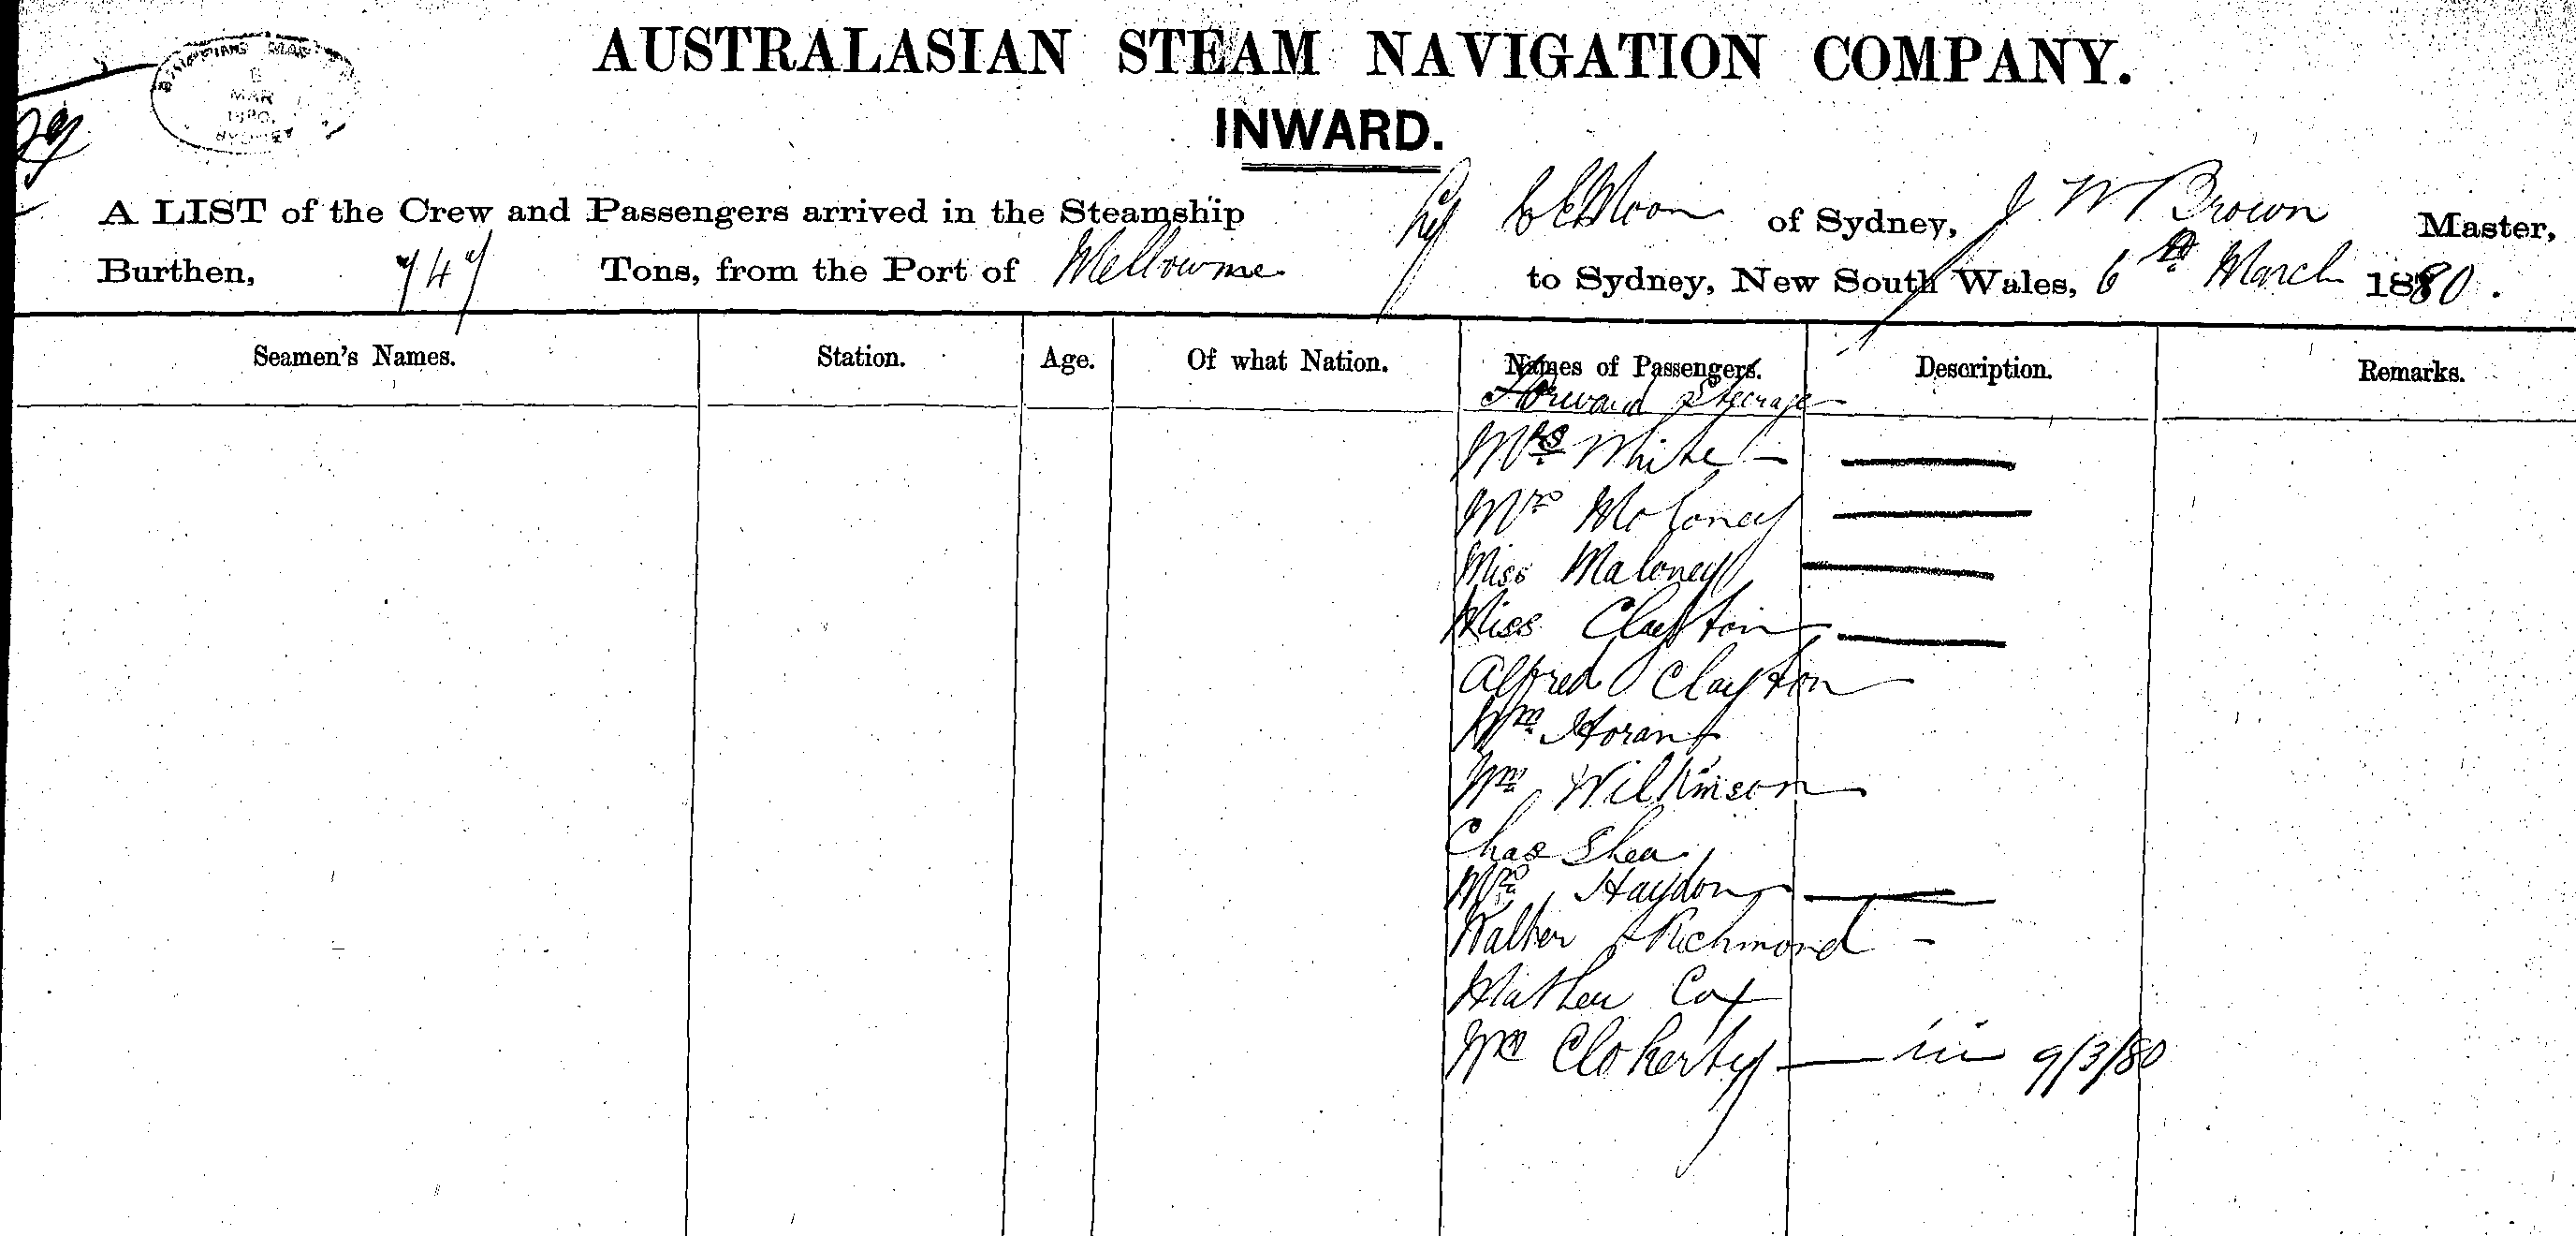 MAR
1880.
SYDNEY
AUSTRALASIAN STEAM NAVIGATION COMPANY.
INWARD.
A LIST of the Crew and Passengers arrived in the Steamship of Sydney, J W Brown Master,
Burthen, 747 Tons, from the Port of to Sydney, New South Wales, 6th March 1880.
Seamen's Names. Station. Age. Of what Nation. Names of Passengers. Description. Remarks.
Forward Steerage
Mrs White
Mrs Moloney
Miss Maloney
Miss Clayton
Alfred Clayton
Wm Horan
Wm Wilkinson
Chas Shea
Mrs Haydon
Walter Richmond
Mathew Cox
Cloherty 9/3/80